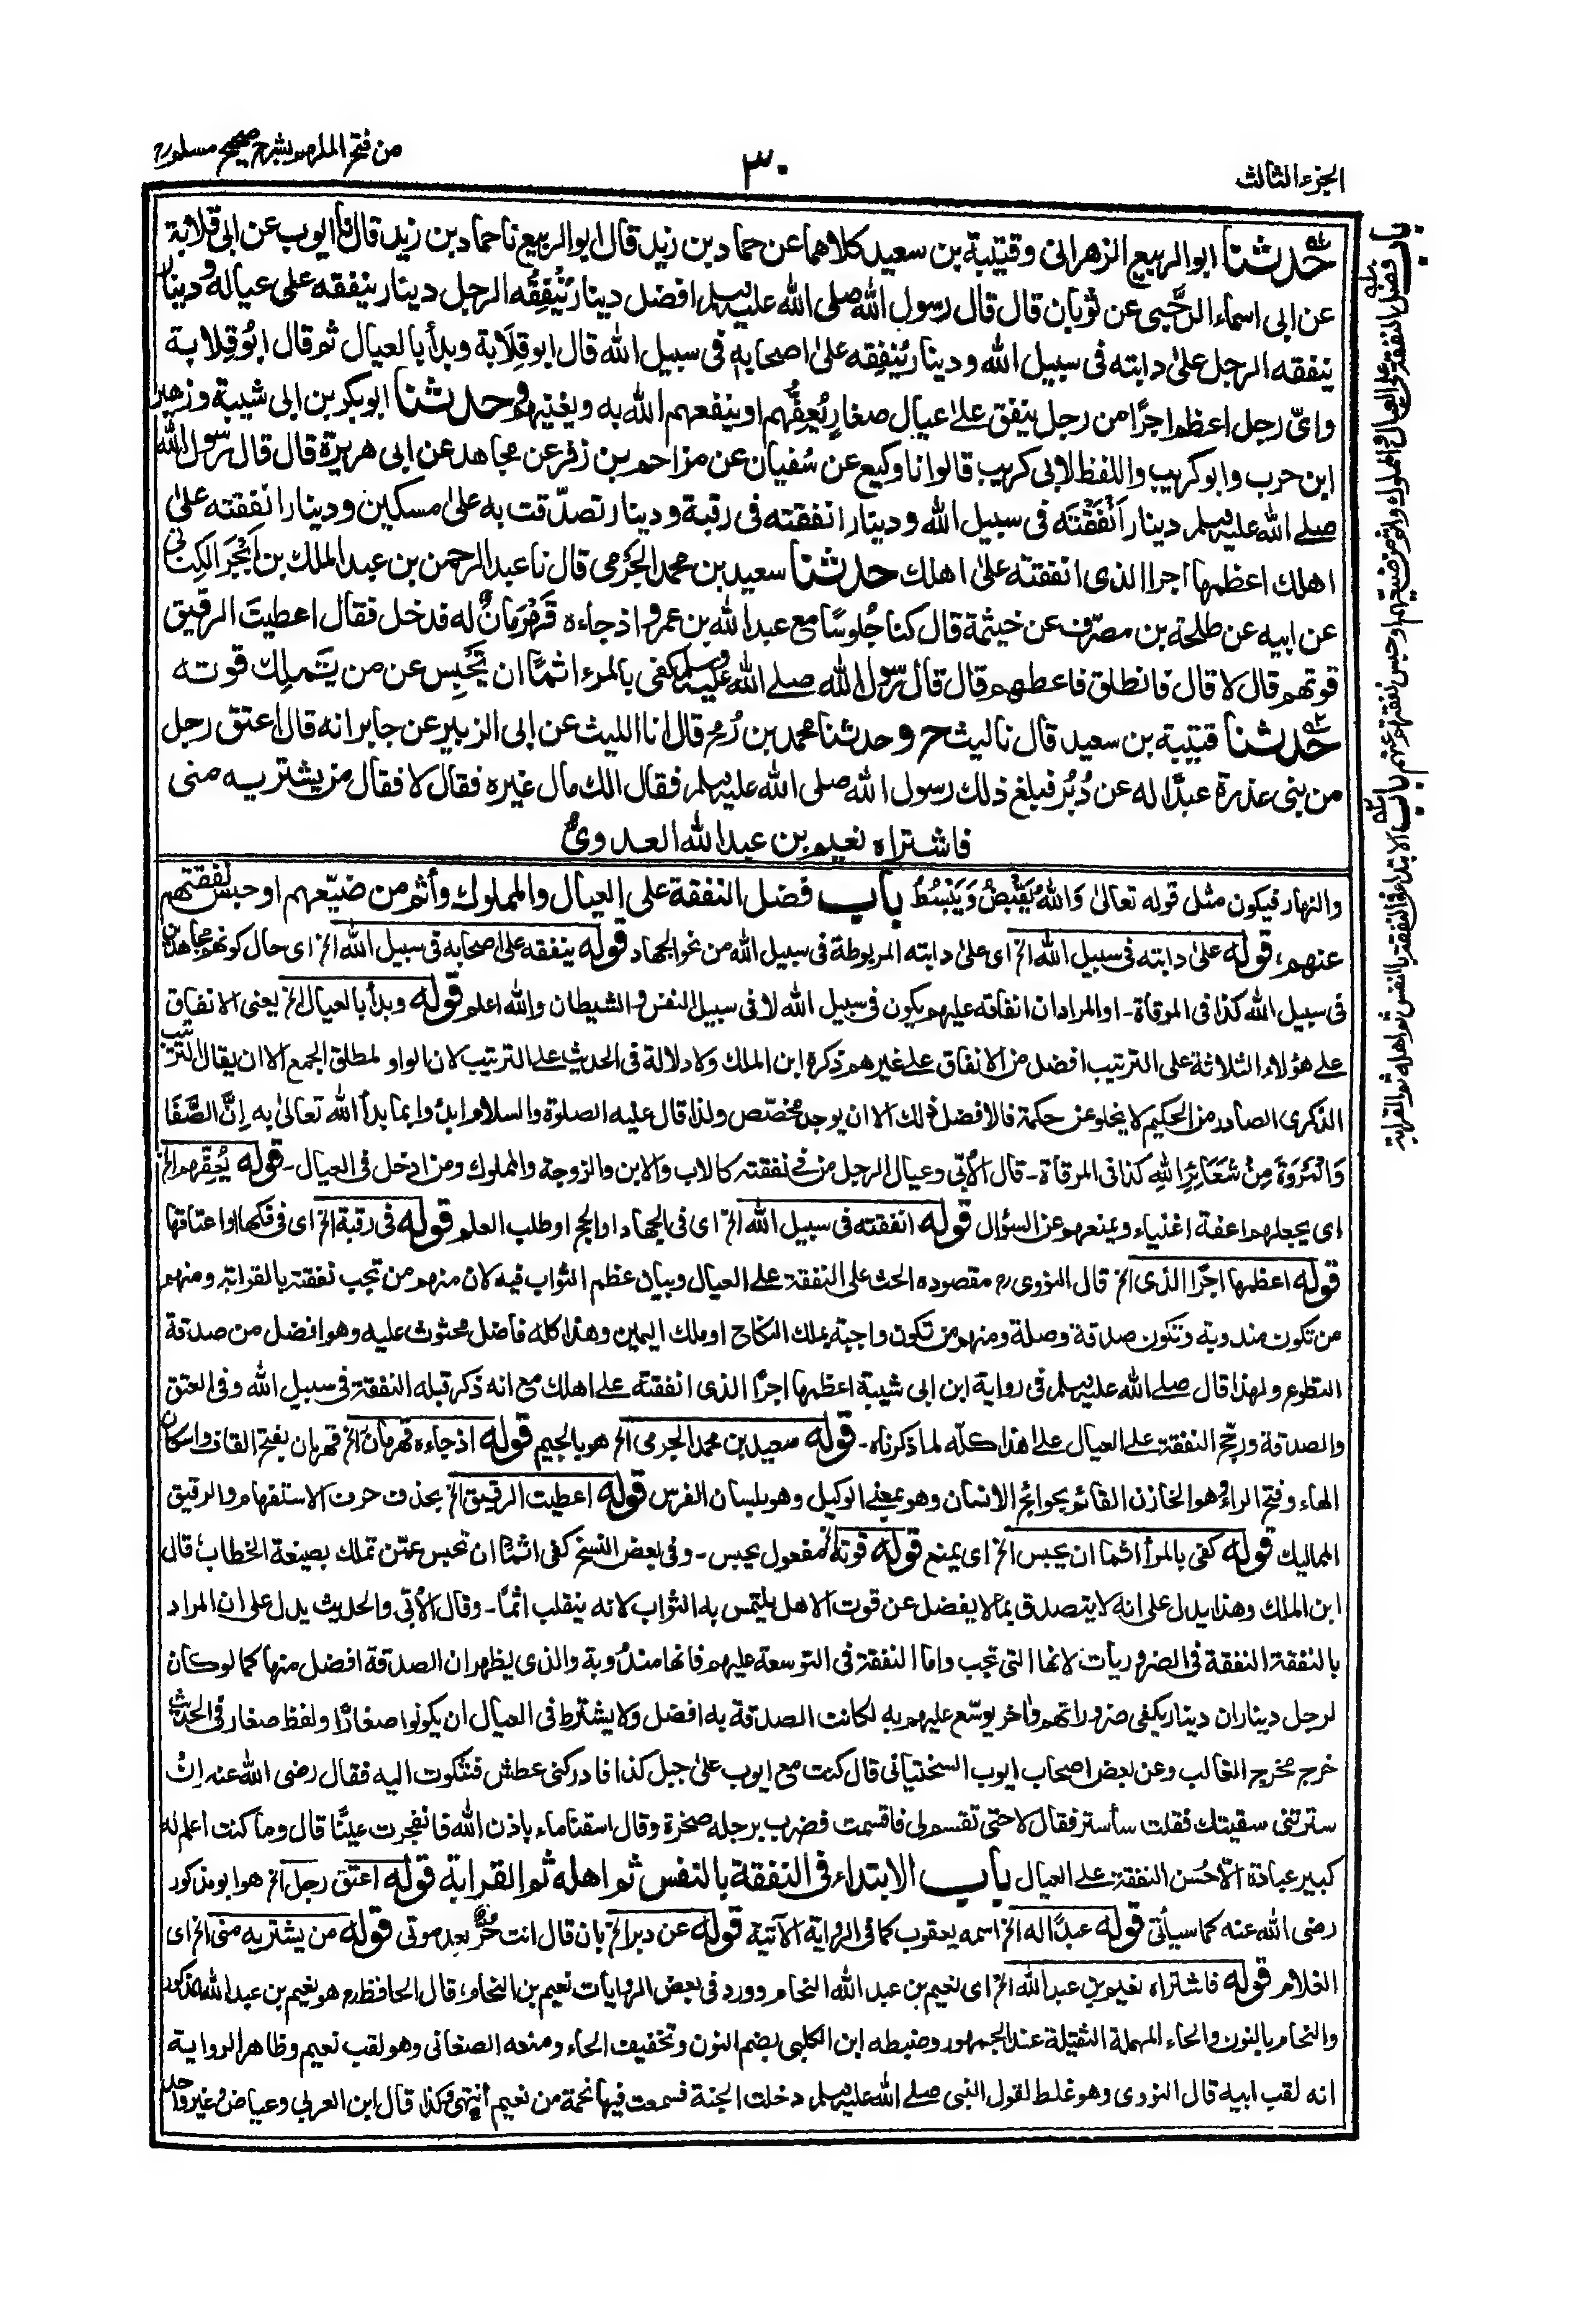 الجزء الثالث
٣٠
من فتح الملهم بشرح صحيح مسلم
باب فضل النفقة على العيال والمملوك واثم من ضيعهم او حبس نفقتهم عنهم باب الابتداء فى النفقة بالنفس ثم اهله ثم القرابة
حدثنا ابو الربيع الزهرانى وقتيبة بن سعيد كلاهما عن حماد بن زيد قال ابو الربيع نا حماد بن زيد قال نا ايوب عن ابى قلابة
عن ابى اسماء الرَّحَبى عن ثوبان قال قال رسول الله صلى الله عليه وسلم افضل دينار يُنْفِقُه الرجل دينار ينفقه على عياله ودينار
ينفقه الرجل على دابته فى سبيل الله ودينار يُنْفِقه على اصحابه فى سبيل الله قال ابو قِلَابة وبدأ بالعيال ثم قال ابُو قِلابة
واىّ رجل اعظم اجرًا من رجل ينفق على عيال صغارٍ يُعِفُّهم او ينفعهم الله به ويغنيهم وحدثنا ابو بكر بن ابى شيبة وزهير
ابن حرب وابو كريب واللفظ لابى كريب قالوا نا وكيع عن سُفيان عن مزاحم بن زفر عن مجاهد عن ابى هريرة قال قال رسول الله
صلى الله عليه وسلم دينار اَنْفَقْتَه فى سبيل الله ودينار انفقته فى رقبة ودينار تصدّقت به على مسكين ودينار انفقته على
اهلك اعظمها اجرا الذى انفقته على اهلك حدثنا سعيد بن محمد الجَرْمى قال نا عبد الرحمن بن عبد الملك بن اَبْجَرَ الكِنَانى
عن ابيه عن طلحة بن مصرّف عن خيثمة قال كنا جُلوسًا مع عبد الله بن عمرو اذ جاءه قَهْرَمَانٌ له فدخل فقال اعطيتَ الرقيق
قوتهم قال لا قال فانطلق فاعطهم قال قال رسول الله صلى الله عليه وسلم كفى بالمرء اثمًا ان يَحْبِس عن من يَّملِك قوته
حدثنا قتيبة بن سعيد قال نا ليث ح وحدثنا محمد بن رُمح قال انا الليث عن ابى الزبير عن جابر انه قال اعتق رجل
من بنى عذرة عبدًا له عن دُبُر فبلغ ذلك رسول الله صلى الله عليه وسلم فقال الك مال غيره فقال لا فقال من يشتريه منى
فاشتراه نعيم بن عبد الله العدوىُّ
والنهار فيكون مثل قوله تعالى وَاللهُ يَقْبِضُ وَيَبْسُطُ باب فضل النفقة على العيال والمملوك وأثم من ضيّعهم او حبس نفقتهم
عنهم، قوله على دابته فى سبيل الله الخ اى على دابته المربوطة فى سبيل الله من نحو الجهاد قوله ينفقه على اصحابه فى سبيل الله الخ اى حال كونهم مجاهدين
فى سبيل الله كذا فى المرقاة۔ او المراد ان انفاقه عليهم يكون فى سبيل الله لا فى سبيل النفس والشيطان والله اعلم قوله وبدأ بالعيال الخ يعنى الانفاق
على هؤلاء الثلاثة على الترتيب افضل من الانفاق على غيرهم ذكره ابن الملك ولا دلالة فى الحديث على الترتيب لان الواو لمطلق الجمع الا ان يقال الترتيب
الذكرى الصادر من الحكيم لا يخلو عن حكمة فالافضل ذلك الا ان يوجد مخصّص ولذا قال عليه الصلوة والسلام ابدؤا بما بدأ الله تعالى به اِنَّ الصَّفَا
وَالْمَرْوَةَ مِنْ شَعَائِرِ اللهِ كذا فى المرقاة۔ قال الأبّى وعيال الرجل من فى نفقته كالاب والابن والزوجة والمملوك ومن ادخل فى العيال۔ قوله يُعِفُّهم الخ
اى يجعلهم اعفة اغنياء ويمنعهم عن السؤال قوله انفقته فى سبيل الله الخ اى فى الجهاد او الحج او طلب العلم قوله فى رقبة الخ اى فى فكها او اعتاقها
قوله اعظمها اجرًا الذى الخ قال النووى رح مقصوده الحث على النفقة على العيال وبيان عظم الثواب فيه لان منهم من تجب نفقته بالقرابة ومنهم
من تكون مندوبة وتكون صدقة وصلة ومنهم من تكون واجبة بملك النكاح او ملك اليمين وهذا كله فاضل محثوث عليه وهو افضل من صدقة
التطوع ولهذا قال صلى الله عليه وسلم فى رواية ابن ابى شيبة اعظمها اجرًا الذى انفقته على اهلك مع انه ذكر قبله النفقة فى سبيل الله وفى العتق
والصدقة ورجّح النفقة على العيال على هذا كلّه لما ذكرناه۔ قوله سعيد بن محمد الجرمى الخ هو بالجيم قوله اذ جاءه قهرمان الخ قهرمان بفتح القاف واسكان
الهاء وفتح الراء وهو الخازن القائم بحوائج الانسان وهو بمعنى الوكيل وهو بلسان الفرس قوله اعطيت الرقيق الخ بحذف حرف الاستفهام والرقيق
المماليك قوله كفى بالمرأ اثما ان يحبس الخ اى يمنع قوله قوته مفعول يحبس۔ وفى بعض النسخ كفى اثمًا ان تحبس عمّن تملك بصيغة الخطاب قال
ابن الملك وهذا يدل على انه لا يتصدق بما لا يفضل عن قوت الاهل يلتمس به الثواب لانه ينقلب اثمًا۔ وقال الأبّى والحديث يدل على ان المراد
بالنفقة النفقة فى الضروريات لانها التى تجب واما النفقة فى التوسعة عليهم فانها مندُوبة والذى يظهر ان الصدقة افضل منها كما لو كان
لرجل ديناران دينار يكفى ضروراتهم واٰخر يوسّع عليهم به لكانت الصدقة به افضل ولا يشترط فى العيال ان يكونوا صغارًا ولفظ صغار فى الحديث
خرج مخرج الغالب وعن بعض اصحاب ايوب السختيانى قال كنت مع ايوب على جبل كذا فادركنى عطش فشكوت اليه فقال رضى الله عنه اِنْ
سترتنى سقيتك فقلت سأستر فقال لا حتى تقسم لى فاقسمت فضرب برجله صخرة وقال اسقنا ماء باذن الله فانفجرت عينًا قال وما كنت اعلم له
كبير عبادة الّا حُسن النفقة على العيال باب الابتداء فى النفقة بالنفس ثم اهله ثم القرابة قوله اعتق رجل الخ هو ابو مذكور
رضى الله عنه كما سيأتى قوله عبدًا له الخ اسمه يعقوب كما فى الرواية الآتية قوله عن دبر الخ بان قال انت حُرٌّ بعد موتى قوله من يشتريه منى الخ اى
الغلام قوله فاشتراه نعيم بن عبد الله الخ اى نعيم بن عبد الله النحام وورد فى بعض الروايات نعيم بن النحام، قال الحافظ رح هو نعيم بن عبد الله المذكور
والنحام بالنون والحاء المهملة الثقيلة عند الجمهور وضبطه ابن الكلبى بضم النون وتخفيف الحاء ومنعه الصغانى وهو لقب نعيم وظاهر الرواية
انه لقب ابيه قال النووى وهو غلط لقول النبى صلى الله عليه وسلم دخلت الجنة فسمعت فيها نحمة من نعيم انتهى وكذا قال ابن العربى وعياض وغير واحد